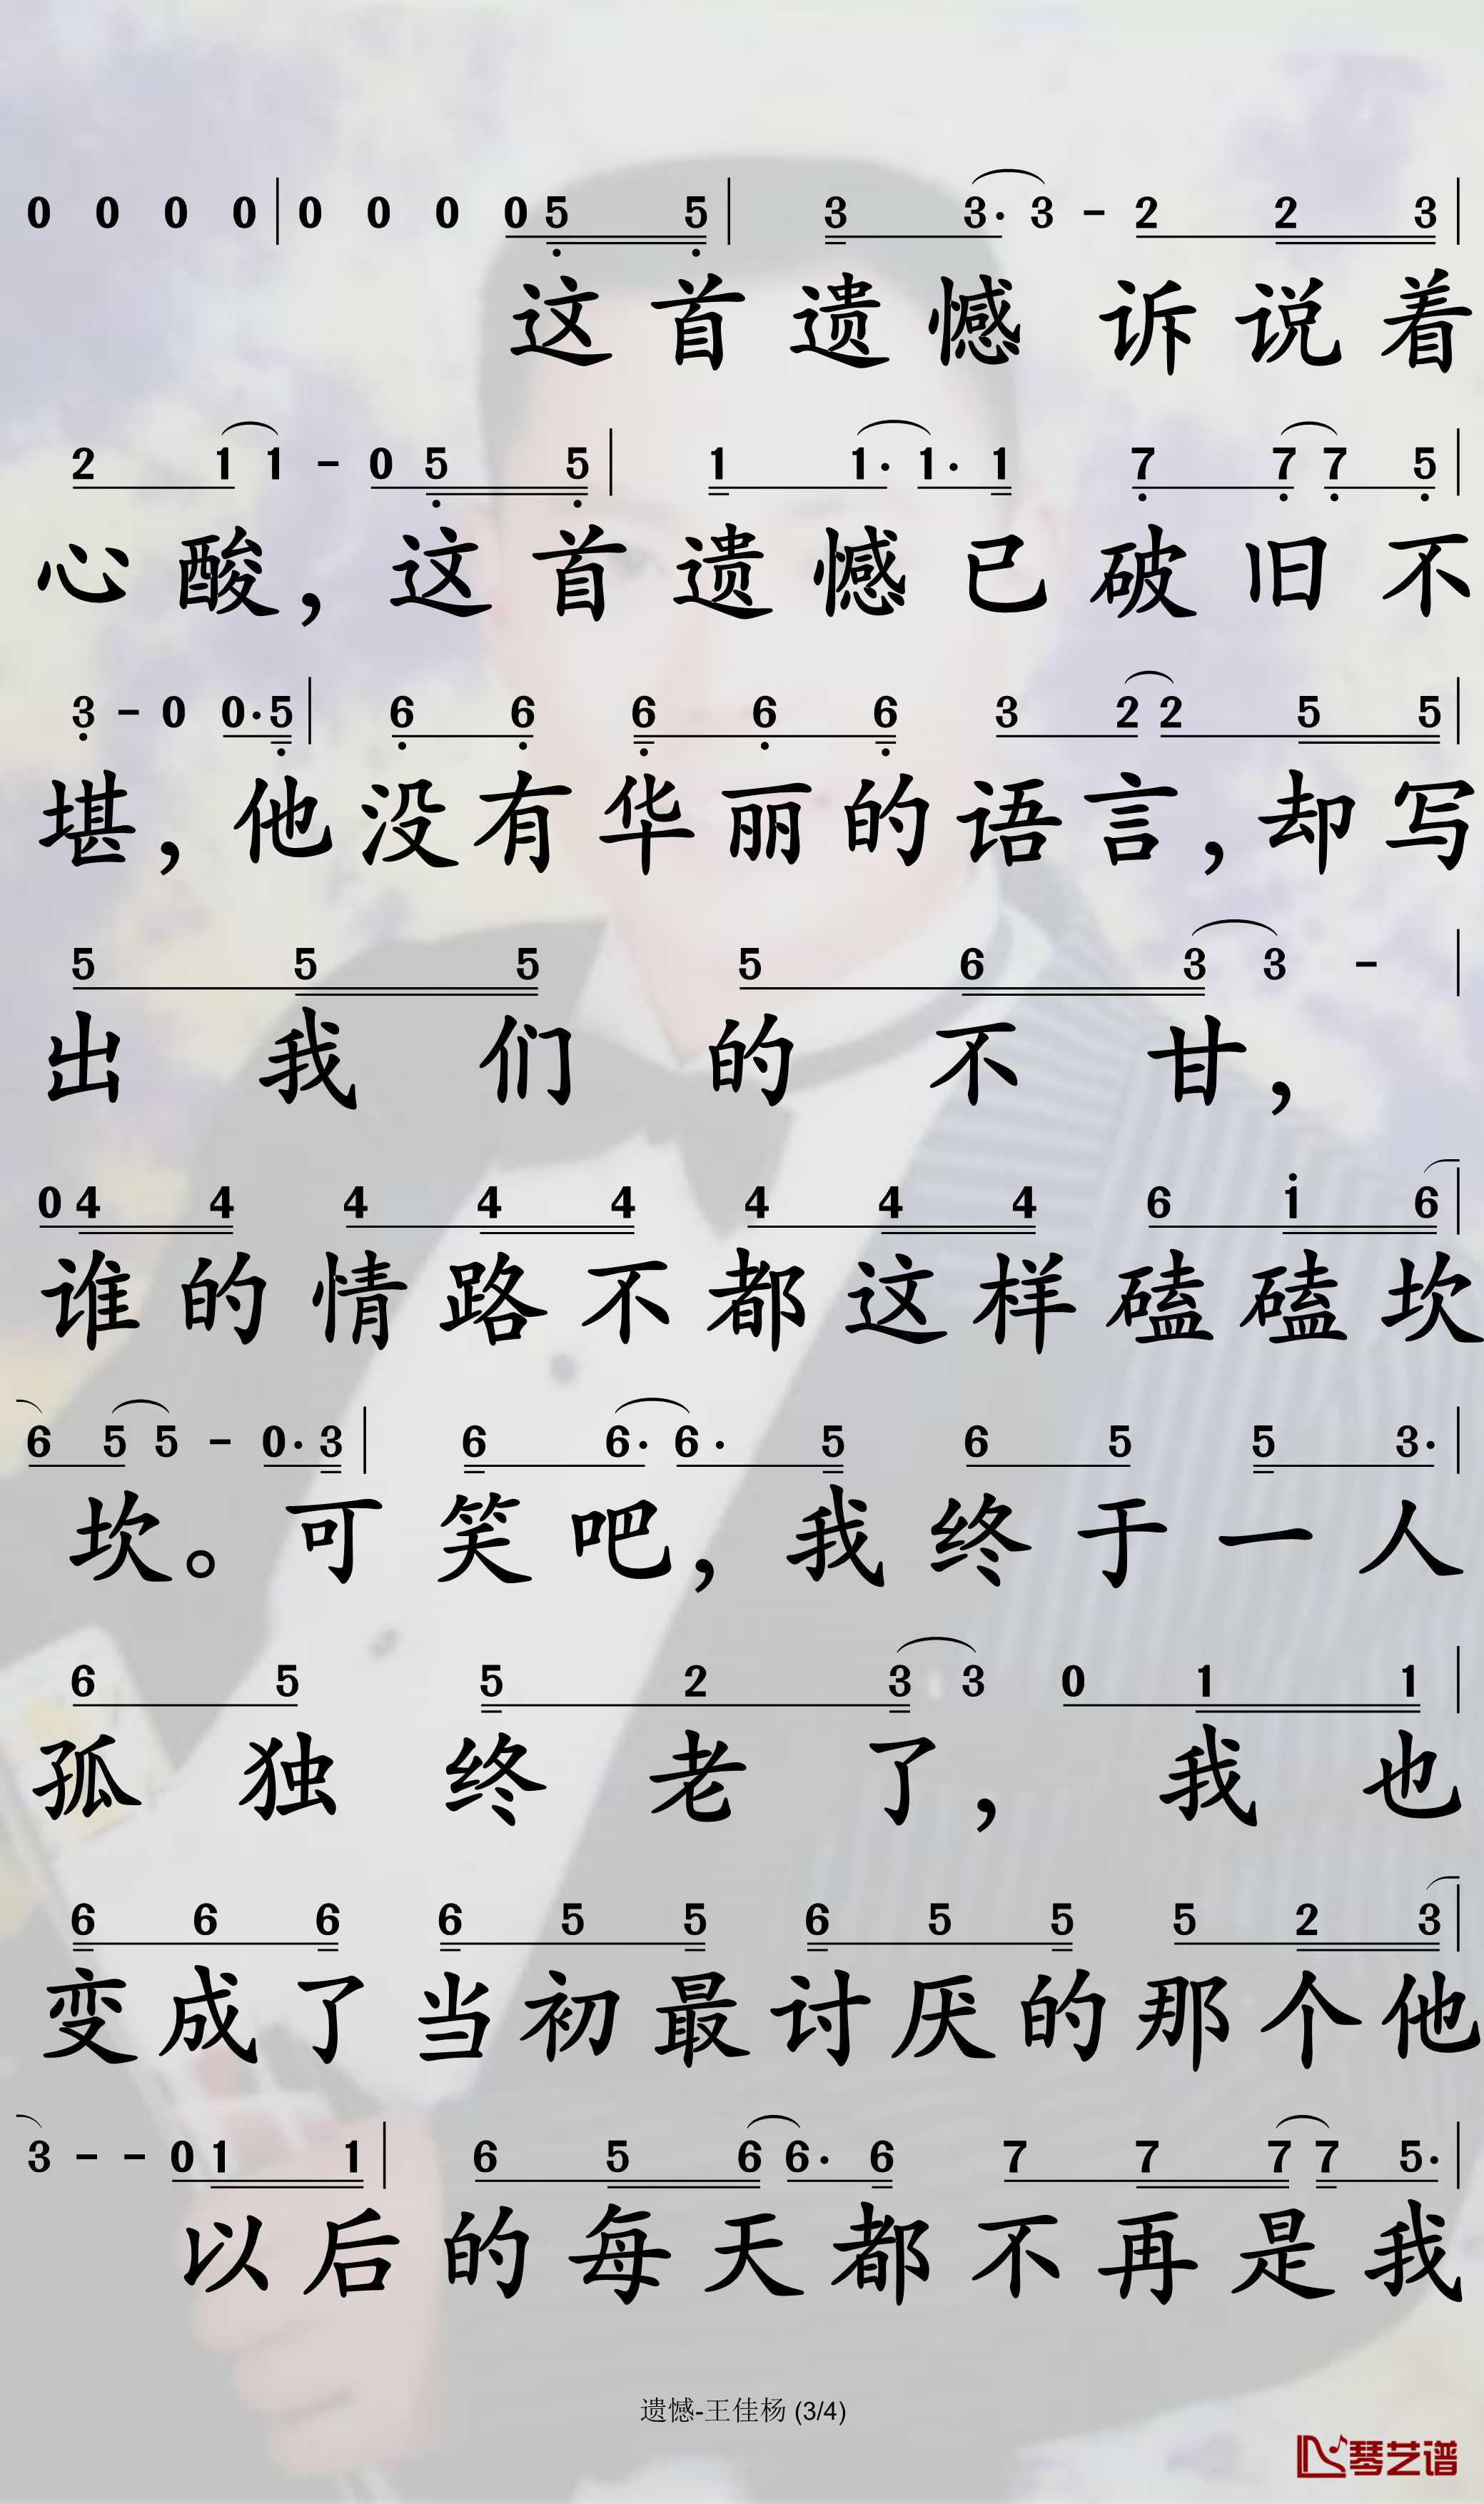 0 0 0 0 | 0 0 0 0 5 5 | 3 3· 3 - 2 2 3 |
这首遗憾诉说着
2 1 1 - 0 5 5 | 1 1· 1· 1 7 7 7 5 |
心酸，这首遗憾已破旧不
3 - 0 0· 5 | 6 6 6 6 6 3 2 2 5 5 |
堪，他没有华丽的语言，却写
5 5 5 5 6 3 3 - |
出我们的不甘，
0 4 4 4 4 4 4 4 4 6 i 6 |
谁的情路不都这样磕磕坎
6 5 5 - 0· 3 | 6 6· 6· 5 6 5 5 3· |
坎。可笑吧，我终于一人
6 5 5 2 3 3 0 1 1 |
孤独终老了，我也
6 6 6 6 5 5 6 5 5 5 2 3 |
变成了当初最讨厌的那个他
3 - - 0 1 1 | 6 5 6 6· 6 7 7 7 7 5· |
以后的每天都不再是我
遗憾-王佳杨 (3/4)
琴艺谱